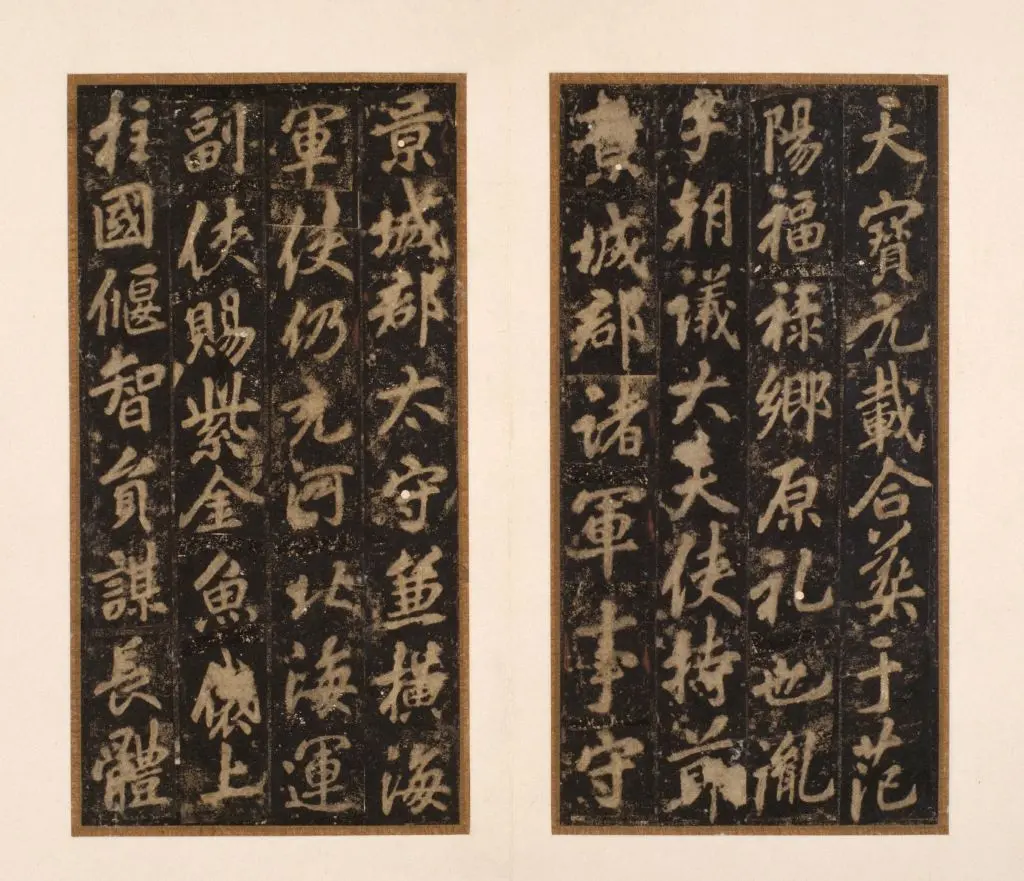 天寶元載合葬于范
陽福祿鄉原礼也胤
子朝議大夫使持節
景城郡諸軍事守
景城郡太守兼橫海
軍使仍充河北海運
副使賜紫金魚袋上
柱國偃智員謀長體